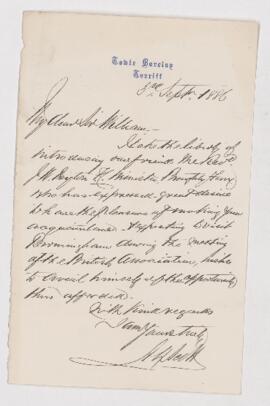 Towie Barclay
Turriff
3rd Sept. 1886
My dear Sir William,
I take the liberty of
introducing our friend the Revd
Minister Broughty Ferry
who has expressed great desire
to have the pleasure of meeting your
acquaintance. Expecting to visit
Birmingham during the meeting
of the British Association, wishes
to avail himself of the opportunity
thus afforded.
With kind regards
I am Yours truly